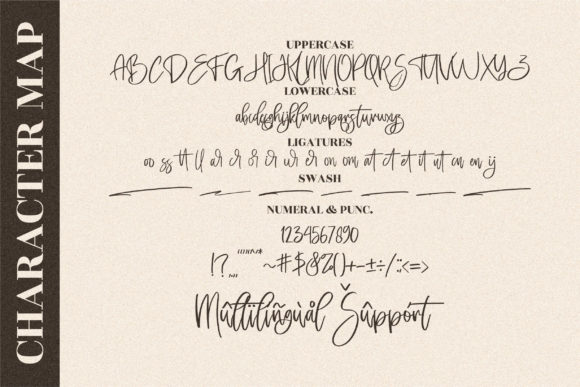 CHARACTER MAP
UPPERCASE
ABCDEFGHIJKLMNOPQRSTUVWXYZ
LOWERCASE
abcdefghijklmnopqrstuvwxyz
LIGATURES
oo ss tt ll ar er or ur er on om at ct et it ut cn en ij
SWASH
NUMERAL & PUNC.
1234567890
~#$&%()+-±÷/:;<=>
Mûltïlîñgùål Šûppórt